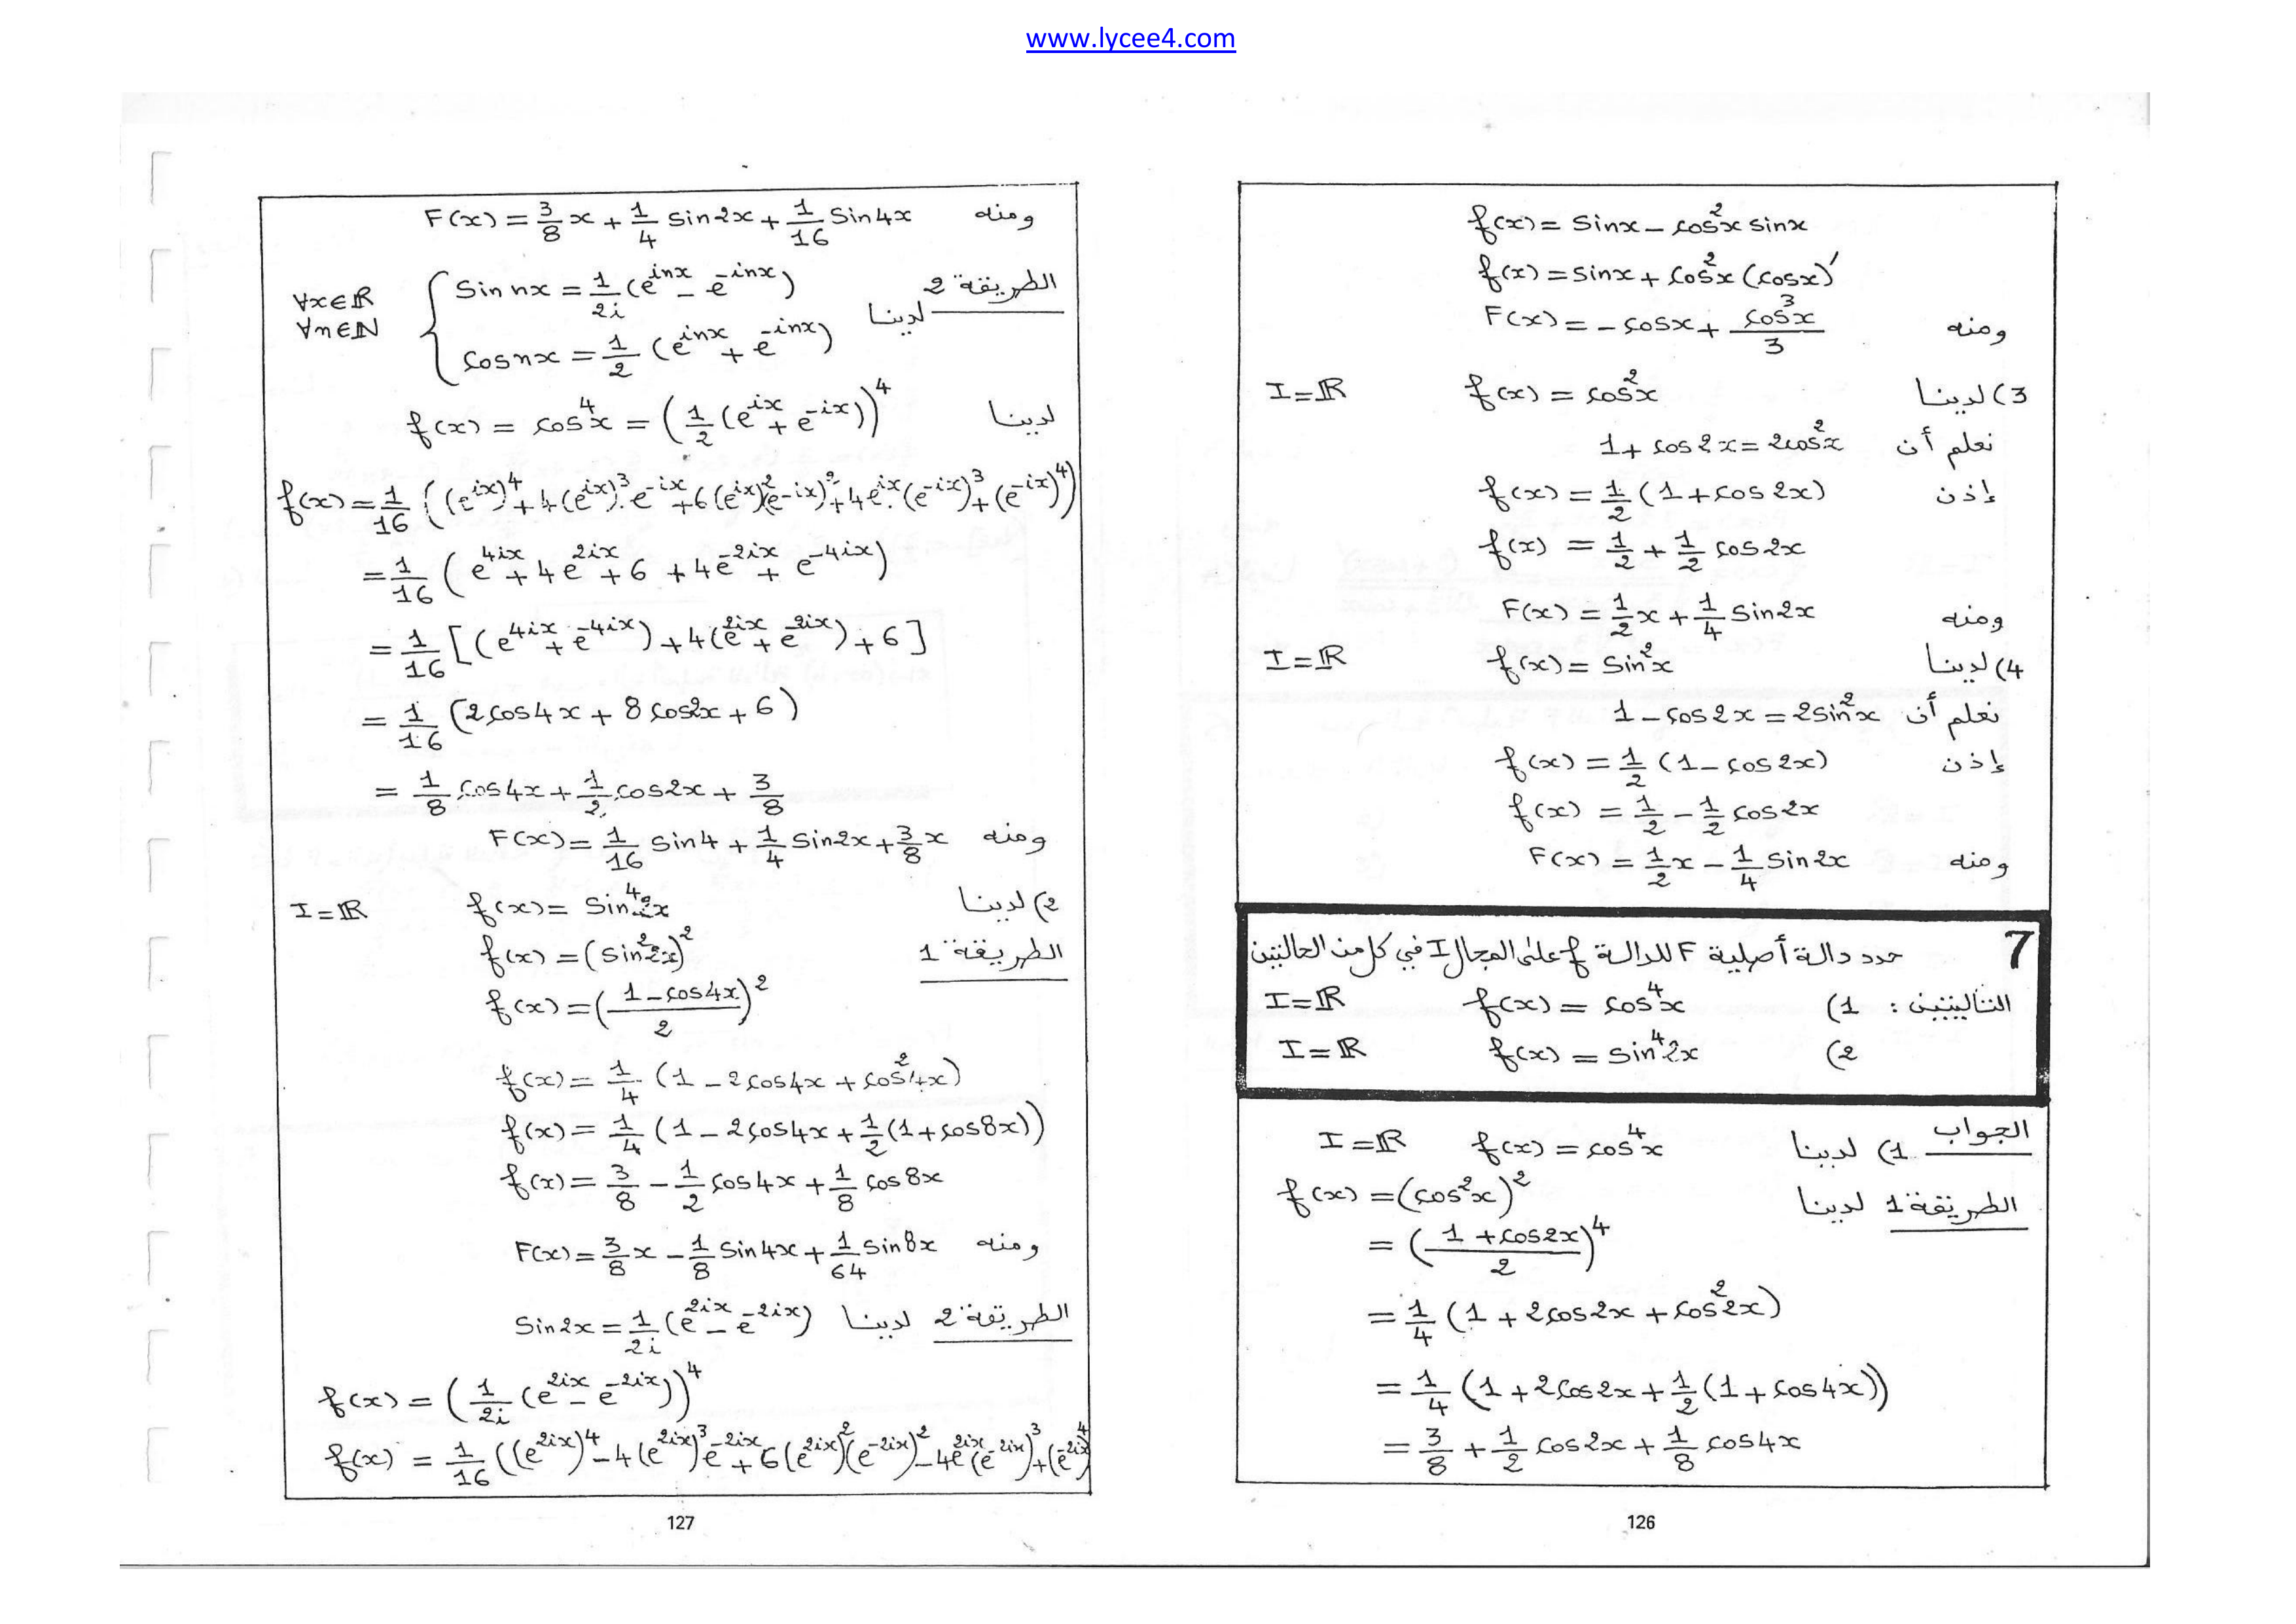 www.lycee4.com
f(x) = sinx − cos²x sinx
f(x) = sinx + cos²x (cosx)'
ومنه F(x) = − cosx + cos³x/3
3) لدينا f(x) = cos²x I = ℝ
نعلم أن 1 + cos2x = 2cos²x
إذن f(x) = 1/2 (1 + cos2x)
f(x) = 1/2 + 1/2 cos2x
ومنه F(x) = 1/2 x + 1/4 sin2x
4) لدينا f(x) = sin²x I = ℝ
نعلم أن 1 − cos2x = 2sin²x
إذن f(x) = 1/2 (1 − cos2x)
f(x) = 1/2 − 1/2 cos2x
ومنه F(x) = 1/2 x − 1/4 sin2x
7 حدد دالة أصلية F للدالة f على المجال I في كل من الحالتين
التاليتين : 1) f(x) = cos⁴x I = ℝ
2) f(x) = sin⁴2x I = ℝ
الجواب 1) لدينا f(x) = cos⁴x I = ℝ
الطريقة 1 لدينا f(x) = (cos²x)²
= ((1 + cos2x)/2)⁴
= 1/4 (1 + 2cos2x + cos²2x)
= 1/4 (1 + 2cos2x + 1/2 (1 + cos4x))
= 3/8 + 1/2 cos2x + 1/8 cos4x
126
ومنه F(x) = 3/8 x + 1/4 sin2x + 1/16 sin4x
الطريقة 2 لدينا { sin nx = 1/2i (e^{inx} − e^{−inx}) ∀x∈ℝ
cos nx = 1/2 (e^{inx} + e^{−inx}) ∀n∈ℕ
لدينا f(x) = cos⁴x = (1/2 (e^{ix} + e^{−ix}))⁴
f(x) = 1/16 ((e^{ix})⁴ + 4(e^{ix})³.e^{−ix} + 6(e^{ix})²(e^{−ix})² + 4e^{ix}.(e^{−ix})³ + (e^{−ix})⁴)
= 1/16 (e^{4ix} + 4e^{2ix} + 6 + 4e^{−2ix} + e^{−4ix})
= 1/16 [(e^{4ix} + e^{−4ix}) + 4(e^{2ix} + e^{−2ix}) + 6]
= 1/16 (2cos4x + 8cos2x + 6)
= 1/8 cos4x + 1/2 cos2x + 3/8
ومنه F(x) = 1/16 sin4 + 1/4 sin2x + 3/8 x
2) لدينا f(x) = sin⁴2x I = ℝ
الطريقة 1 f(x) = (sin²2x)²
f(x) = ((1 − cos4x)/2)²
f(x) = 1/4 (1 − 2cos4x + cos²4x)
f(x) = 1/4 (1 − 2cos4x + 1/2 (1 + cos8x))
f(x) = 3/8 − 1/2 cos4x + 1/8 cos8x
ومنه F(x) = 3/8 x − 1/8 sin4x + 1/64 sin8x
الطريقة 2 لدينا sin2x = 1/2i (e^{2ix} − e^{−2ix})
f(x) = (1/2i (e^{2ix} − e^{−2ix}))⁴
f(x) = 1/16 ((e^{2ix})⁴ − 4(e^{2ix})³e^{−2ix} + 6(e^{2ix})²(e^{−2ix})² − 4e^{2ix}(e^{−2ix})³ + (e^{−2ix})⁴
127